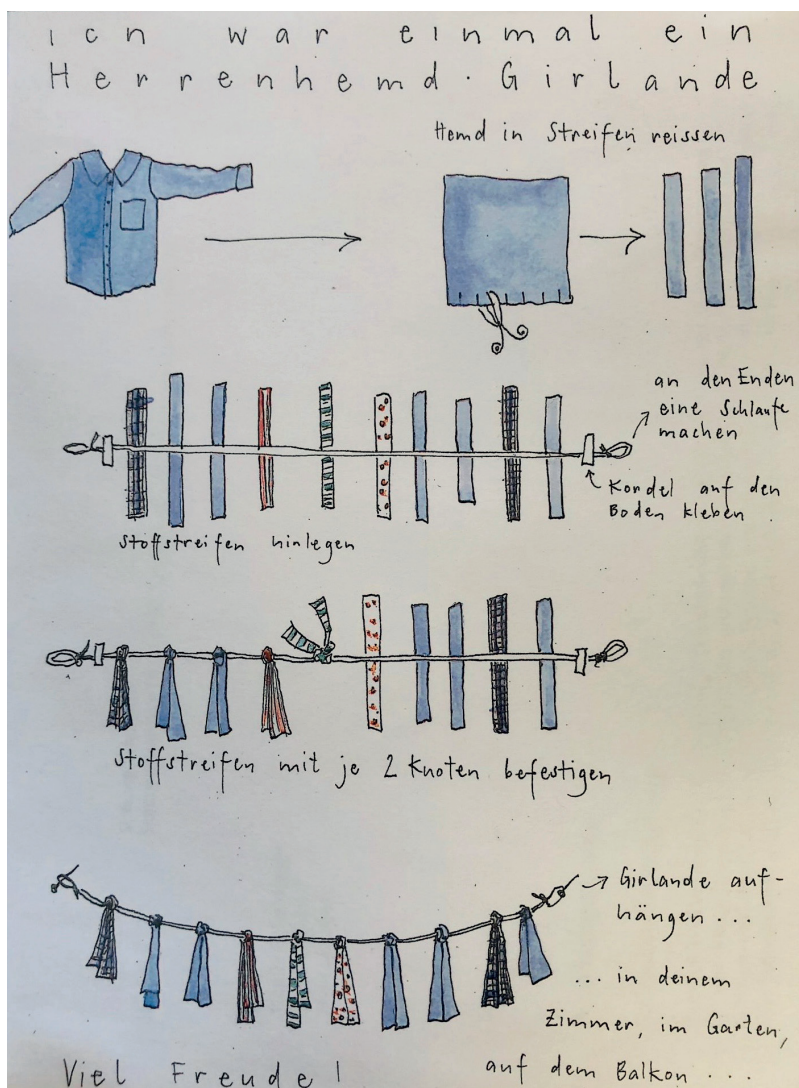 ich war einmal ein
Herrenhemd · Girlande
Hemd in Streifen reissen
an den Enden
eine Schlaufe
machen
Kordel auf den
Boden kleben
Stoffstreifen hinlegen
Stoffstreifen mit je 2 Knoten befestigen
Girlande auf-
hängen ...
... in deinem
Zimmer, im Garten,
auf dem Balkon ...
Viel Freude!